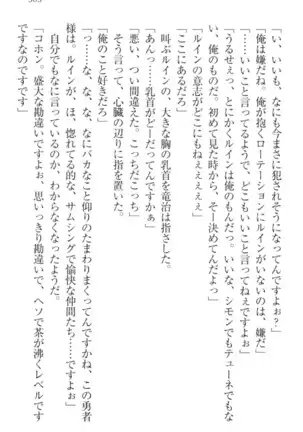 「い、いいも、なにも今まさに犯されそうになってんですよぉ?」
「俺は嫌だね。俺が抱くローテーションにルインがいないのは、嫌だ」
「いいこと言ってるようで、どこもいいこと言ってねぇですよぉ」
「うるせぇっ、とにかくルインは俺のもんだっ。いいな、シモンでもテューネでもな
い、俺のものだ。初めて見た時から、そー決めてんだよっ」
「ルインの意志がどこにもねぇぇぇぇぇ」
「ここにあるだろ」
叫ぶルインの、大きな胸の乳首を竜治は指さした。
「あんっ……乳首がどーだってんですかぁ」
「悪い、いい間違えた。こっちだこっち」
そう言って、心臓の辺りに指を置いた。
「俺のこと好きだろ」
「っ……な、な、な、なにバカなこと仰りのたまわりまくってんですかね、この勇者
様は。ルインが、ほ、惚れてる的な、サムシングで愉快な仲間たち……ですよぉ」
自分でもなに言っているのか、わからなくなったようだ。
「コホン。盛大な勘違いですよぉ　思いっきり勘違いで、ヘソで茶が沸くレベルです
ですなのです」